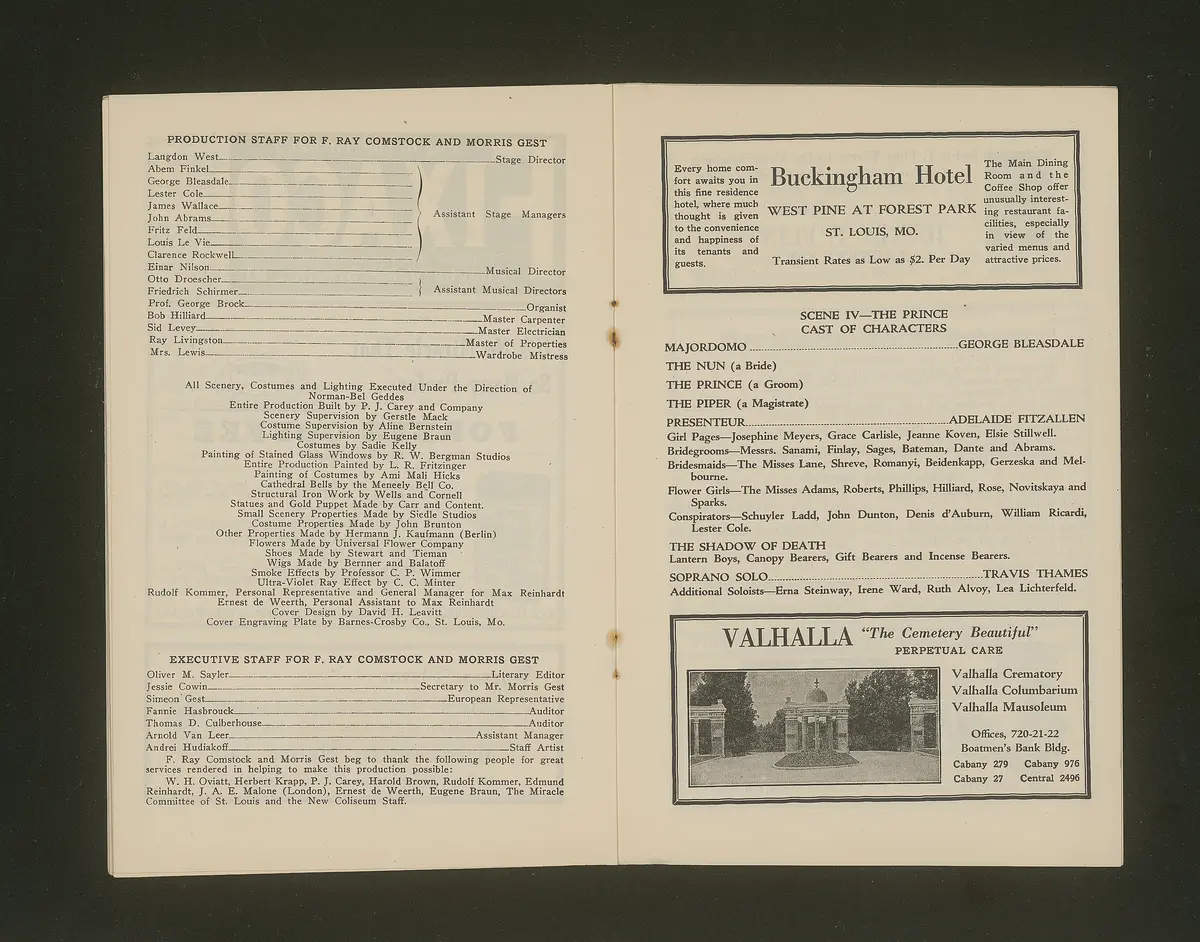 PRODUCTION STAFF FOR F. RAY COMSTOCK AND MORRIS GEST
Langdon West Stage Director
Abem Finkel
George Bleasdale
Lester Cole
James Wallace
John Abrams Assistant Stage Managers
Fritz Feld
Louis Le Vie
Clarence Rockwell
Einar Nilson Musical Director
Otto Droescher
Friedrich Schirmer Assistant Musical Directors
Prof. George Brock Organist
Bob Hilliard Master Carpenter
Sid Levey Master Electrician
Ray Livingston Master of Properties
Mrs. Lewis Wardrobe Mistress
All Scenery, Costumes and Lighting Executed Under the Direction of
Norman-Bel Geddes
Entire Production Built by P. J. Carey and Company
Scenery Supervision by Gerstle Mack
Costume Supervision by Aline Bernstein
Lighting Supervision by Eugene Braun
Costumes by Sadie Kelly
Painting of Stained Glass Windows by R. W. Bergman Studios
Entire Production Painted by L. R. Fritzinger
Painting of Costumes by Ami Mali Hicks
Cathedral Bells by the Meneely Bell Co.
Structural Iron Work by Wells and Cornell
Statues and Gold Puppet Made by Carr and Content.
Small Scenery Properties Made by Siedle Studios
Costume Properties Made by John Brunton
Other Properties Made by Hermann J. Kaufmann (Berlin)
Flowers Made by Universal Flower Company
Shoes Made by Stewart and Tieman
Wigs Made by Bernner and Balatoff
Smoke Effects by Professor C. P. Wimmer
Ultra-Violet Ray Effect by C. C. Minter
Rudolf Kommer, Personal Representative and General Manager for Max Reinhardt
Ernest de Weerth, Personal Assistant to Max Reinhardt
Cover Design by David H. Leavitt
Cover Engraving Plate by Barnes-Crosby Co., St. Louis, Mo.
EXECUTIVE STAFF FOR F. RAY COMSTOCK AND MORRIS GEST
Oliver M. Sayler Literary Editor
Jessie Cowin Secretary to Mr. Morris Gest
Simeon Gest European Representative
Fannie Hasbrouck Auditor
Thomas D. Culberhouse Auditor
Arnold Van Leer Assistant Manager
Andrei Hudiakoff Staff Artist
F. Ray Comstock and Morris Gest beg to thank the following people for great
services rendered in helping to make this production possible:
W. H. Oviatt, Herbert Krapp, P. J. Carey, Harold Brown, Rudolf Kommer, Edmund
Reinhardt, J. A. E. Malone (London), Ernest de Weerth, Eugene Braun, The Miracle
Committee of St. Louis and the New Coliseum Staff.
Every home com-
fort awaits you in
this fine residence
hotel, where much
thought is given
to the convenience
and happiness of
its tenants and
guests.
Buckingham Hotel
WEST PINE AT FOREST PARK
ST. LOUIS, MO.
Transient Rates as Low as $2. Per Day
The Main Dining
Room and the
Coffee Shop offer
unusually interest-
ing restaurant fa-
cilities, especially
in view of the
varied menus and
attractive prices.
SCENE IV—THE PRINCE
CAST OF CHARACTERS
MAJORDOMO GEORGE BLEASDALE
THE NUN (a Bride)
THE PRINCE (a Groom)
THE PIPER (a Magistrate)
PRESENTEUR ADELAIDE FITZALLEN
Girl Pages—Josephine Meyers, Grace Carlisle, Jeanne Koven, Elsie Stillwell.
Bridegrooms—Messrs. Sanami, Finlay, Sages, Bateman, Dante and Abrams.
Bridesmaids—The Misses Lane, Shreve, Romanyi, Beidenkapp, Gerzeska and Mel-
bourne.
Flower Girls—The Misses Adams, Roberts, Phillips, Hilliard, Rose, Novitskaya and
Sparks.
Conspirators—Schuyler Ladd, John Dunton, Denis d'Auburn, William Ricardi,
Lester Cole.
THE SHADOW OF DEATH
Lantern Boys, Canopy Bearers, Gift Bearers and Incense Bearers.
SOPRANO SOLO TRAVIS THAMES
Additional Soloists—Erna Steinway, Irene Ward, Ruth Alvoy, Lea Lichterfeld.
VALHALLA "The Cemetery Beautiful"
PERPETUAL CARE
Valhalla Crematory
Valhalla Columbarium
Valhalla Mausoleum
Offices, 720-21-22
Boatmen's Bank Bldg.
Cabany 279 Cabany 976
Cabany 27 Central 2496